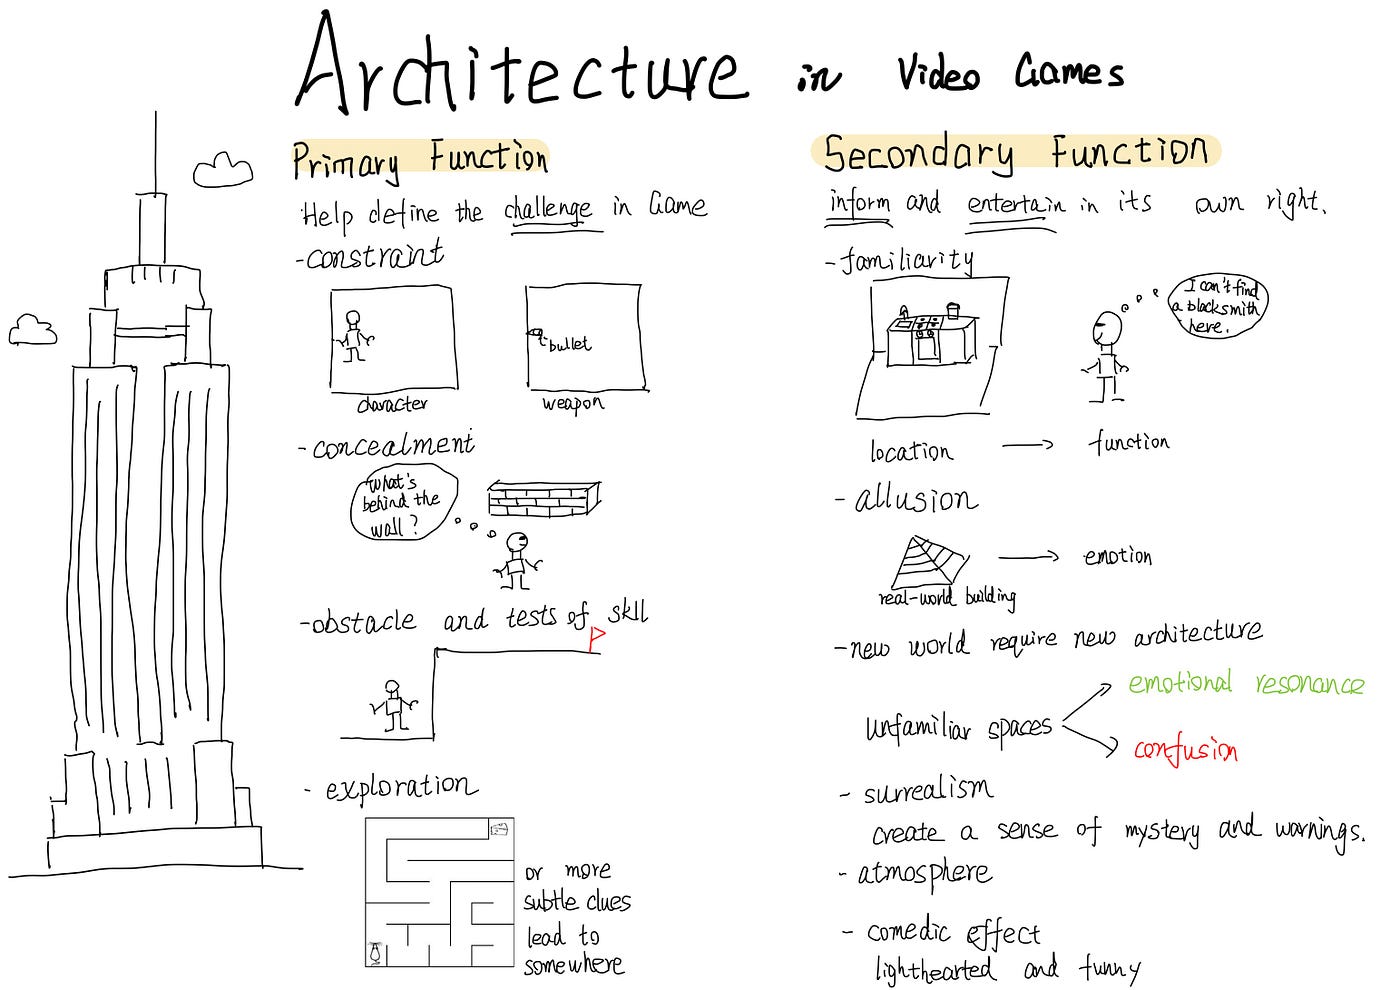 Architecture in Video Games
Primary Function
Help define the challenge in Game
- constraint
character
bullet
weapon
- concealment
What's
behind the
wall?
- obstacle and tests of skll
- exploration
or more
subtle clues
lead to
somewhere
Secondary Function
inform and entertain in its own right.
- familiarity
I can't find
a blacksmith
here.
location → function
- allusion
→ emotion
real-world building
- new world require new architecture
unfamiliar spaces
emotional resonance
confusion
- surrealism
create a sense of mystery and warnings.
- atmosphere
- comedic effect
lighthearted and funny